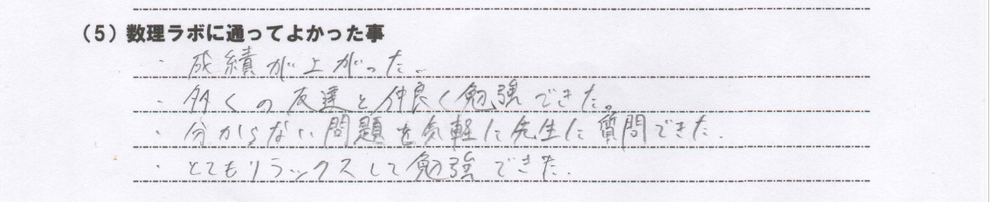 （5）数理ラボに通ってよかった事
・成績が上がった。
・多くの友達と仲良く勉強できた。
・分からない問題を気軽に先生に質問できた.
・とてもリラックスして勉強できた.